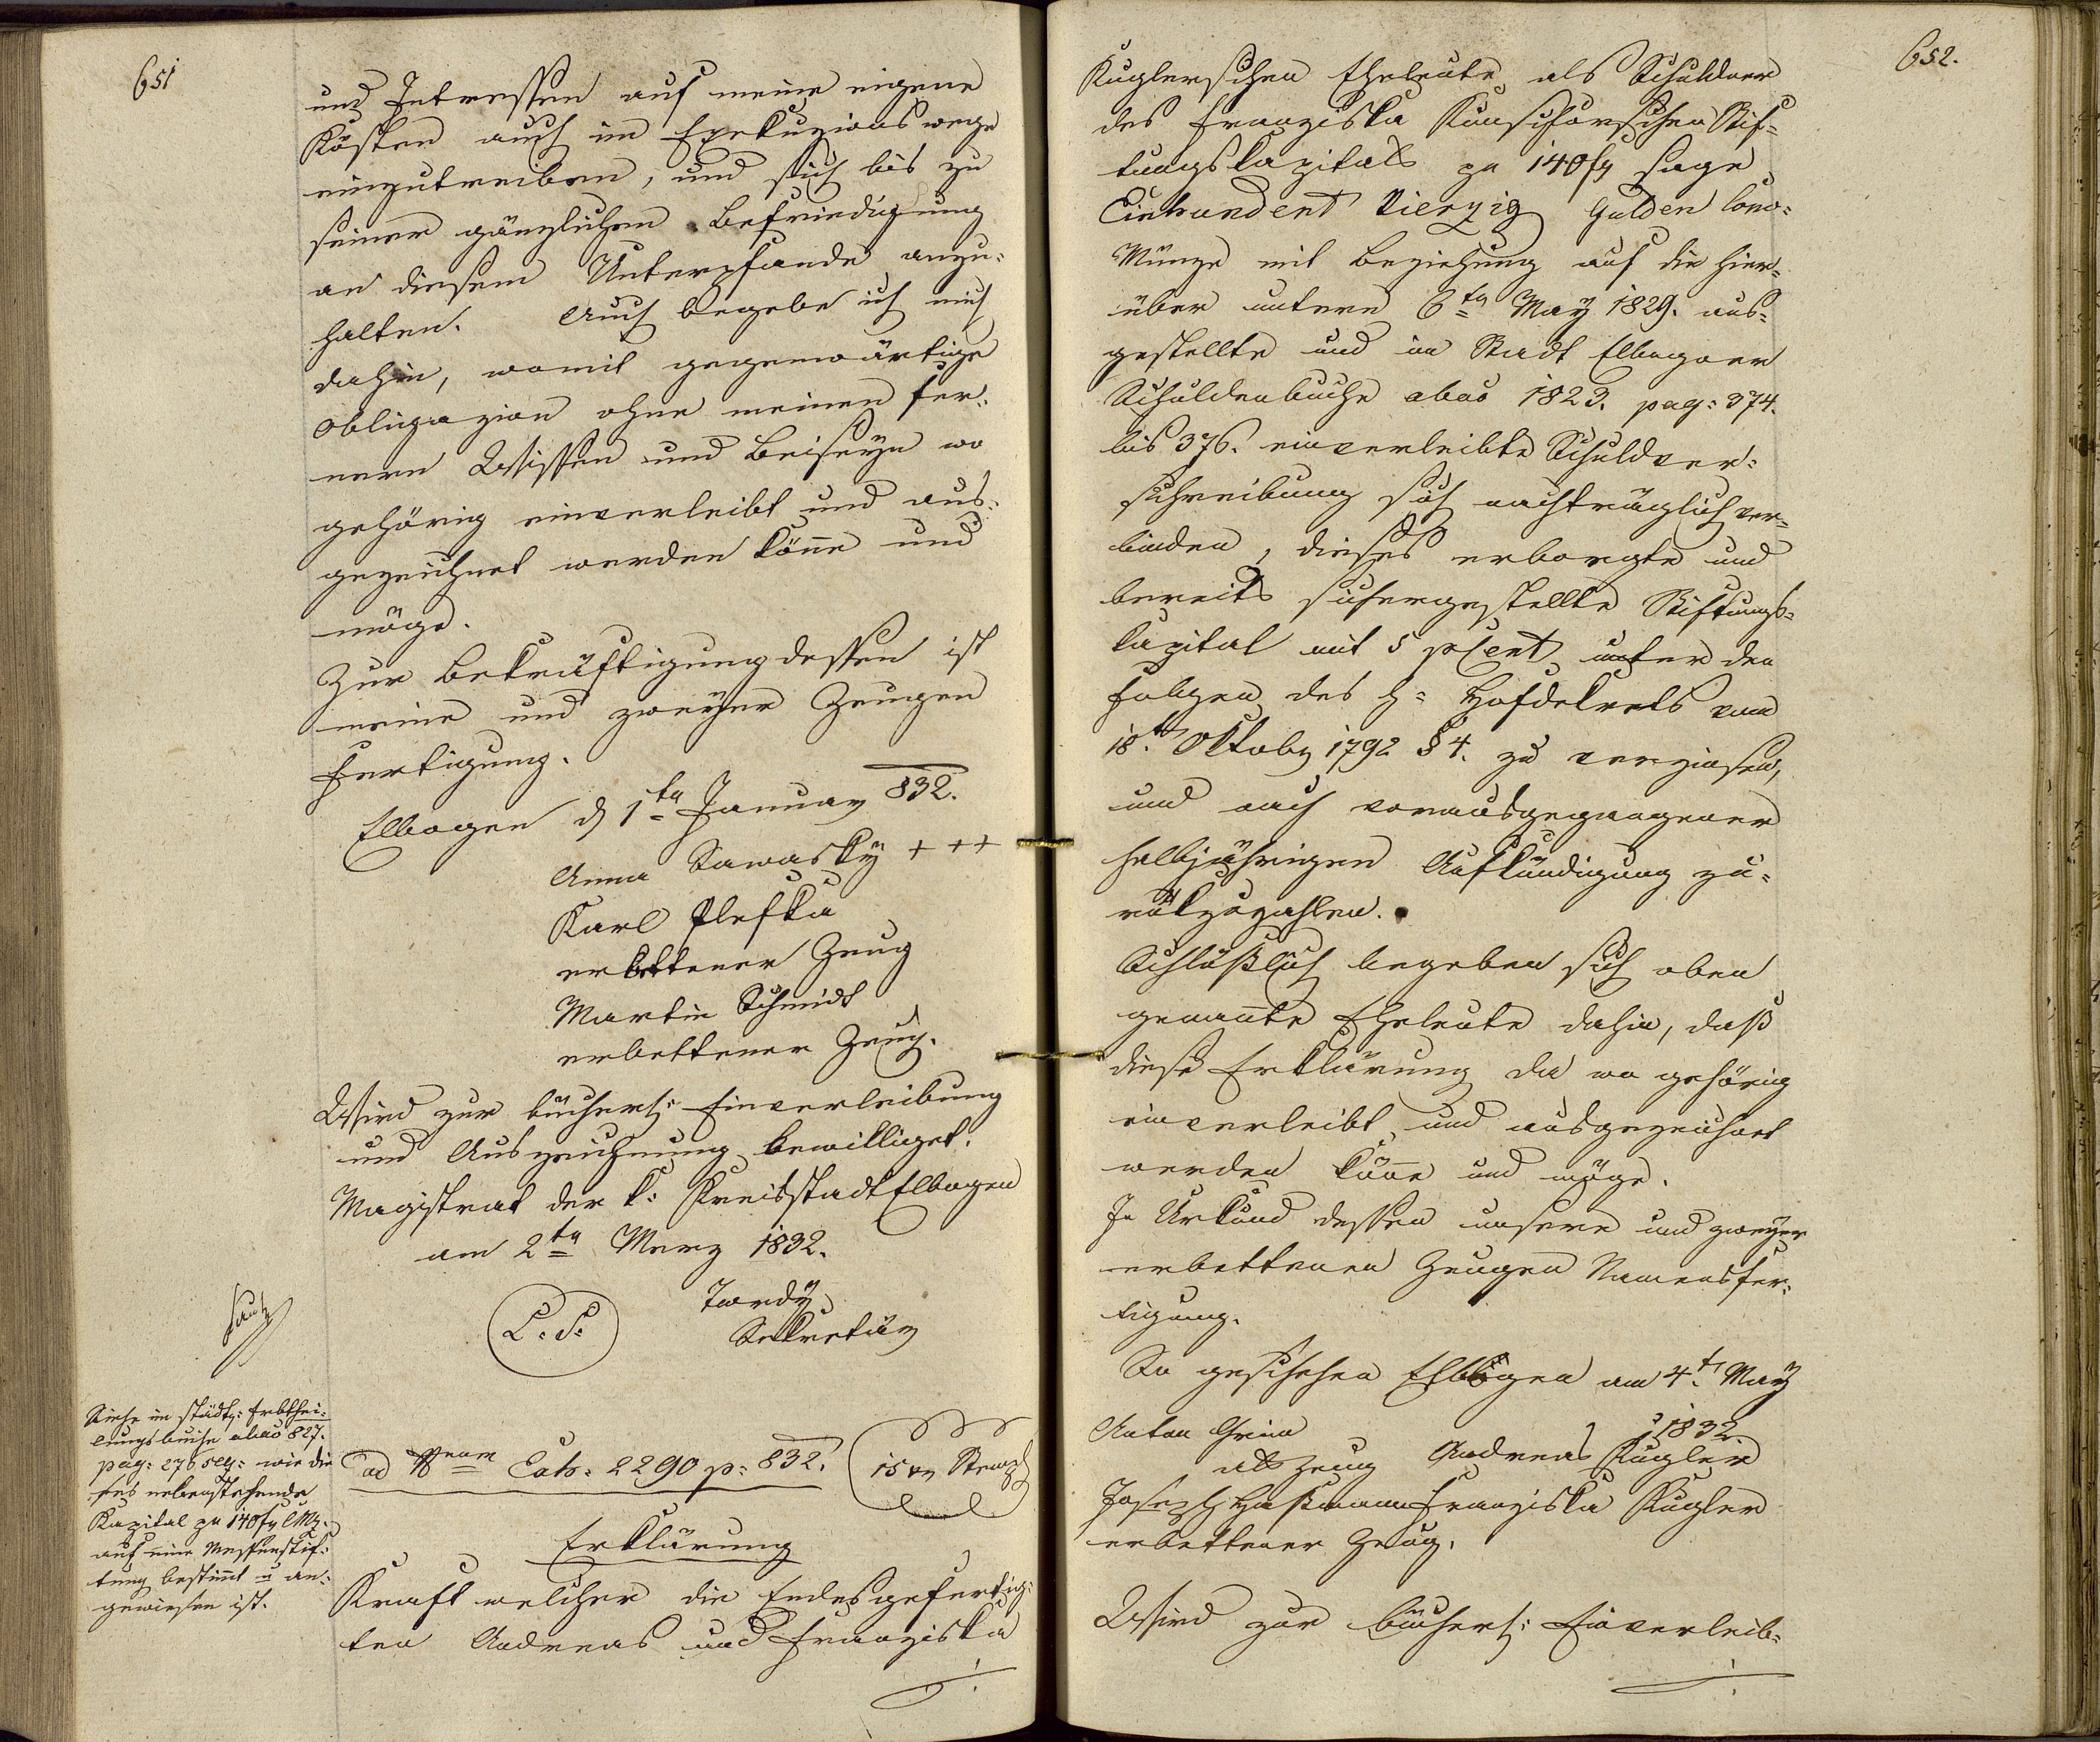 651
und Intressen auf meine eigene
Kösten auch im Exekuzionswege
einzutreiben, und sich bis zu
seiner gänzlichen Befriedigung
an diesem Unterpfande anzu-
halten. Auch begebe ich mich
dahin, womit gegenwärtige
Obligazion ohne meinen fer-
nern Wissen und Beiseyn wo
gehörig einverleibt und aus-
gezeichnet werden könne und
möge.
Zur Bekräftigung dessen ist
meine und zweyer Zeugen
Fertigung.
Elbogen d 1ten Januar 832.
Anna Sawasky + + +
Karl Plefka
erbettener Zeug
Martin Schmidt
erbettener Zeug.
Wird zur bücherl: Einverleibung
und Auszeichnung bewilliget.
Magistrat der k: Kreisstadt Elbogen
am 2ten Merz 1832.
L. S.
Tordy
Sekretär
Siehe im städt: Erbthei-
lungsbuche abao 827.
pag: 276 seq: wie die
ses nebenstehende
Kapital zu 140 fr CMz.
auf eine Messenstif-
tung bestimt u an-
gewiesen ist.
ad Nrum Exh: 2290 p: 832.
15 xr Stempl
Erklärung
Kraft welcher die Endesgefertig-
ten Andreas und Franziska
652.
Kuglerschen Eheleute als Schuldner
des Franziska Kunschorschen Stif-
tungskapitals zu 140 fr sage
Einhundert Vierzig Gulden Conv-
Münze mit Beziehung auf die hier-
über unterm 6ten May 1829. aus-
gestellte und im Stadt Elbogner
Schuldenbuche abao 1823. pag: 374.
bis 376. einverleibte Schuldver-
schreibung sich nachträglich ver-
binden, dieses erborgte und
bereits sichergestellte Stiftungs-
kapital mit 5 pCent unter den
Folgen des h= Hofdekrets vom
18t Oktober 1792 § 4. zu verzinsen,
und nach vorausgegangener
halbjährigen Aufkündigung zu-
rükzuzahlen.
Schlüßlich begeben sich oben
genannte Eheleute dahin, daß
diese Erklärung da wo gehörig
einverleibt und ausgezeichnet
werden könne und möge.
In Urkund dessen unsere und zweyer
erbettenen Zeugen Namensfer-
tigung.
So geschehen Elbogen am 4t May
1832.
Anton Grim
als Zeug Andreas Kugler
Joseph Haßmann Franziska Kugler
erbettener Zeug.
Wird zur bücherl: Einverleib-